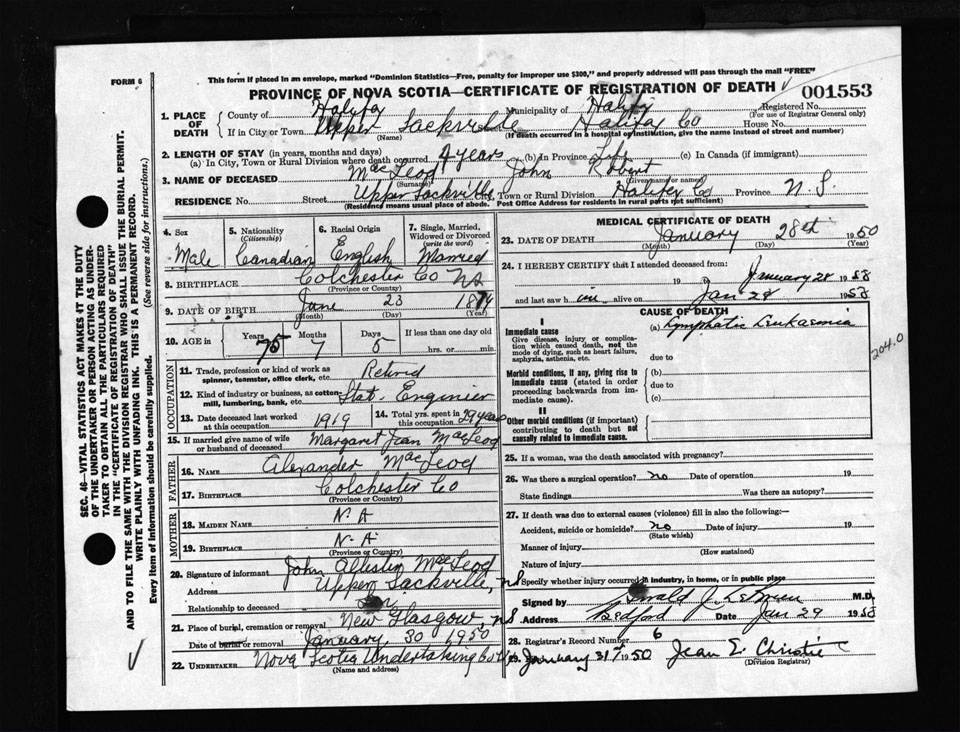 This form if placed in an envelope, marked "Dominion Statistics—Free, penalty for improper use $300," and properly addressed will pass through the mail "FREE"
FORM 6
PROVINCE OF NOVA SCOTIA—CERTIFICATE OF REGISTRATION OF DEATH
001553
1. PLACE OF DEATH
County of Halifax Municipality of Halifax Registered No.
(For use of Registrar General only)
If in City or Town Upper Sackville Halifax Co House No.
(Name) (If death occurred in a hospital or institution, give the name instead of street and number)
2. LENGTH OF STAY (in years, months and days)
(a) In City, Town or Rural Division where death occurred 4 years (b) In Province Life (c) In Canada (if immigrant)
3. NAME OF DECEASED MacLeod John Robert
(Surname) (Given or names)
RESIDENCE No. Street Upper Sackville City, Town or Rural Division Halifax Co Province N.S.
(Residence means usual place of abode. Post Office Address for residents in rural parts not sufficient)
4. Sex 5. Nationality (Citizenship) 6. Racial Origin 7. Single, Married, Widowed or Divorced (write the word)
Male Canadian English Married
8. BIRTHPLACE Colchester Co NS
(Province or Country)
9. DATE OF BIRTH June 23 1874
(Month) (Day) (Year)
10. AGE in Years 75 Months 7 Days 5 If less than one day old
hrs. or min.
OCCUPATION
11. Trade, profession or kind of work as spinner, teamster, office clerk, etc. Retired
12. Kind of industry or business, as cotton mill, lumbering, bank, etc. Stat. Enginier
13. Date deceased last worked at this occupation 1919 14. Total yrs. spent in this occupation 29 years
15. If married give name of wife or husband of deceased Margaret Jean MacLeod
FATHER
16. NAME Alexander MacLeod
17. BIRTHPLACE Colchester Co
(Province or Country)
MOTHER
18. MAIDEN NAME N.A
19. BIRTHPLACE N-A
(Province or Country)
20. Signature of informant John Allister MacLeod
Address Upper Sackville, NS
Relationship to deceased Son
21. Place of burial, cremation or removal New Glasgow, NS
Date of burial or removal January, 30 1950
22. UNDERTAKER Nova Scotia Undertaking
(Name and address)
MEDICAL CERTIFICATE OF DEATH
23. DATE OF DEATH January 28th 1950
(Month) (Day) (Year)
24. I HEREBY CERTIFY that I attended deceased from:
19 to January 28 1950
and last saw him alive on Jan 28 1950
CAUSE OF DEATH
I
Immediate cause
Give disease, injury or complication which caused death, not the mode of dying, such as heart failure, asphyxia, asthenia, etc.
(a) Lymphatic Leukaemia
204.0
due to
Morbid conditions, if any, giving rise to immediate cause (stated in order proceeding backwards from immediate cause).
(b)
due to
(c)
II
Other morbid conditions (if important) contributing to death but not causally related to immediate cause.
25. If a woman, was the death associated with pregnancy?
26. Was there a surgical operation? no Date of operation 19
State findings Was there an autopsy?
27. If death was due to external causes (violence) fill in also the following:—
Accident, suicide or homicide? no Date of injury 19
(State which)
Manner of injury
(How sustained)
Nature of injury
Specify whether injury occurred in industry, in home, or in public place
Signed by M.D.
Address Bedford Date Jan 29 1950
28. Registrar's Record Number 6
January 31st 1950 Jean E. Christie
(Division Registrar)
SEC. 46—VITAL STATISTICS ACT MAKES IT THE DUTY
OF THE UNDERTAKER OR PERSON ACTING AS UNDER-
TAKER TO OBTAIN ALL THE PARTICULARS REQUIRED
IN THE "CERTIFICATE OF REGISTRATION OF DEATH"
AND TO FILE THE SAME WITH THE DIVISION REGISTRAR WHO SHALL ISSUE THE BURIAL PERMIT.
WRITE PLAINLY WITH UNFADING INK. THIS IS A PERMANENT RECORD.
Every item of information should be carefully supplied. (See reverse side for instructions.)